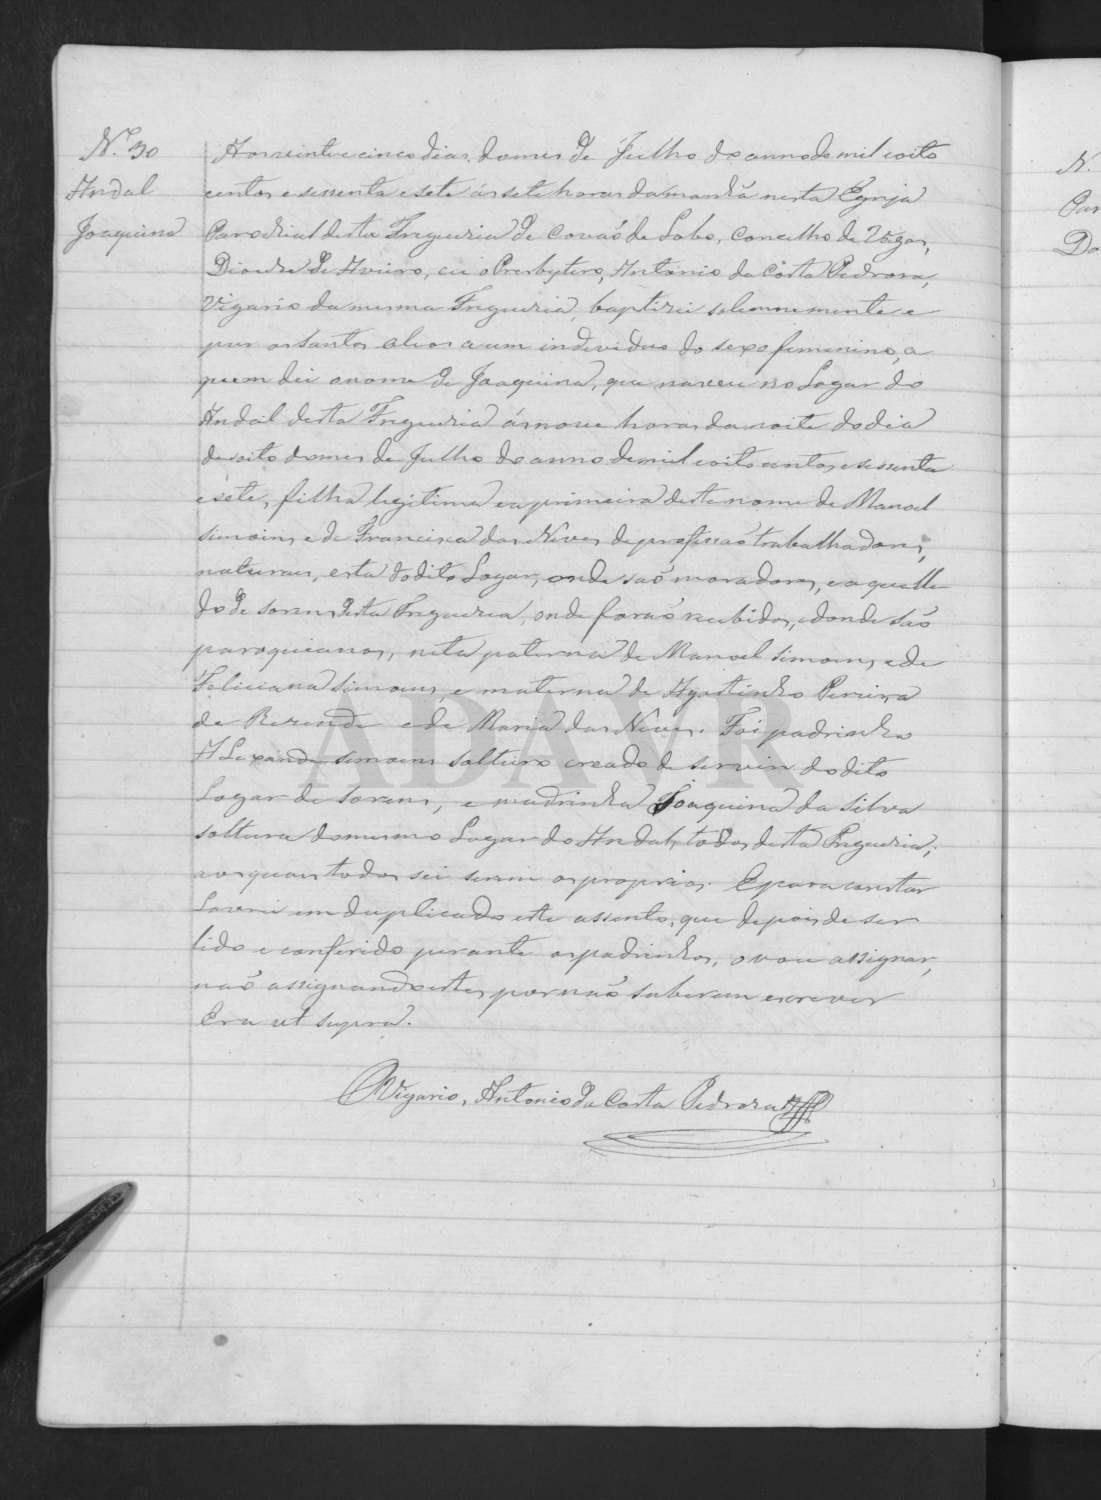 N.º 30
Andal
Joaquina
Aos vinte e cinco dias do mes de Julho do anno de mil oito
centos e sessenta e sete ás sete horas da manhã nesta Egreja
Parochial desta Freguezia de Covaõ de Lobo, Concelho de Vagos,
Diocese de Aveiro, eu o Presbytero, Antonio da Costa Pedrosa,
Vigario da mesma Freguezia, baptizei solemnemente e
pus os santos oleos a um individuo do sexo femenino, a
quem dei o nome de Joaquina, que nasceu no Logar do
Andal desta Freguezia ás nove horas da noite do dia
desoito do mes de Julho do anno de mil oito centos e sessenta
e sete, filha legitima e a primeira deste nome de Manoel
Simoins, e de Francisca das Neves de profissaõ trabalhadores,
naturaes, esta do dito Logar, onde saõ moradores, e aquelle
do de Sorens desta Freguezia, onde foraõ recebidos, e donde saõ
paroquianos, neta paterna de Manoel Simoens, e de
Feliciana Simoens, e materna de Agostinho Pereira
de Rezende e de Maria das Neves. Foi padrinho
Alexandre Simoens solteiro creado de servir do dito
Logar de Sorens, e madrinha Joaquina da Silva
solteira do mesmo Logar do Andal, todos desta Freguezia,
aos quaes todos sei serem os proprios. E para constar
lavrei em duplicado este assento, que depois de ser
lido e conferido perante os padrinhos, o vou assignar,
naõ assignando estes por naõ saberem escrever
Era ut supra.
O Vigario, Antonio da Costa Pedrosa
ADAVR
N.
Par
Do